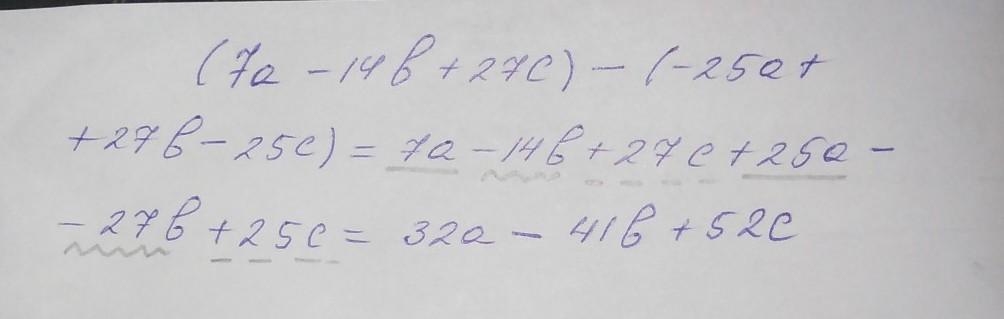 (7a - 14b + 27c) - (-25a +
+ 27b - 25c) = 7a - 14b + 27c + 25a -
- 27b + 25c = 32a - 41b + 52c